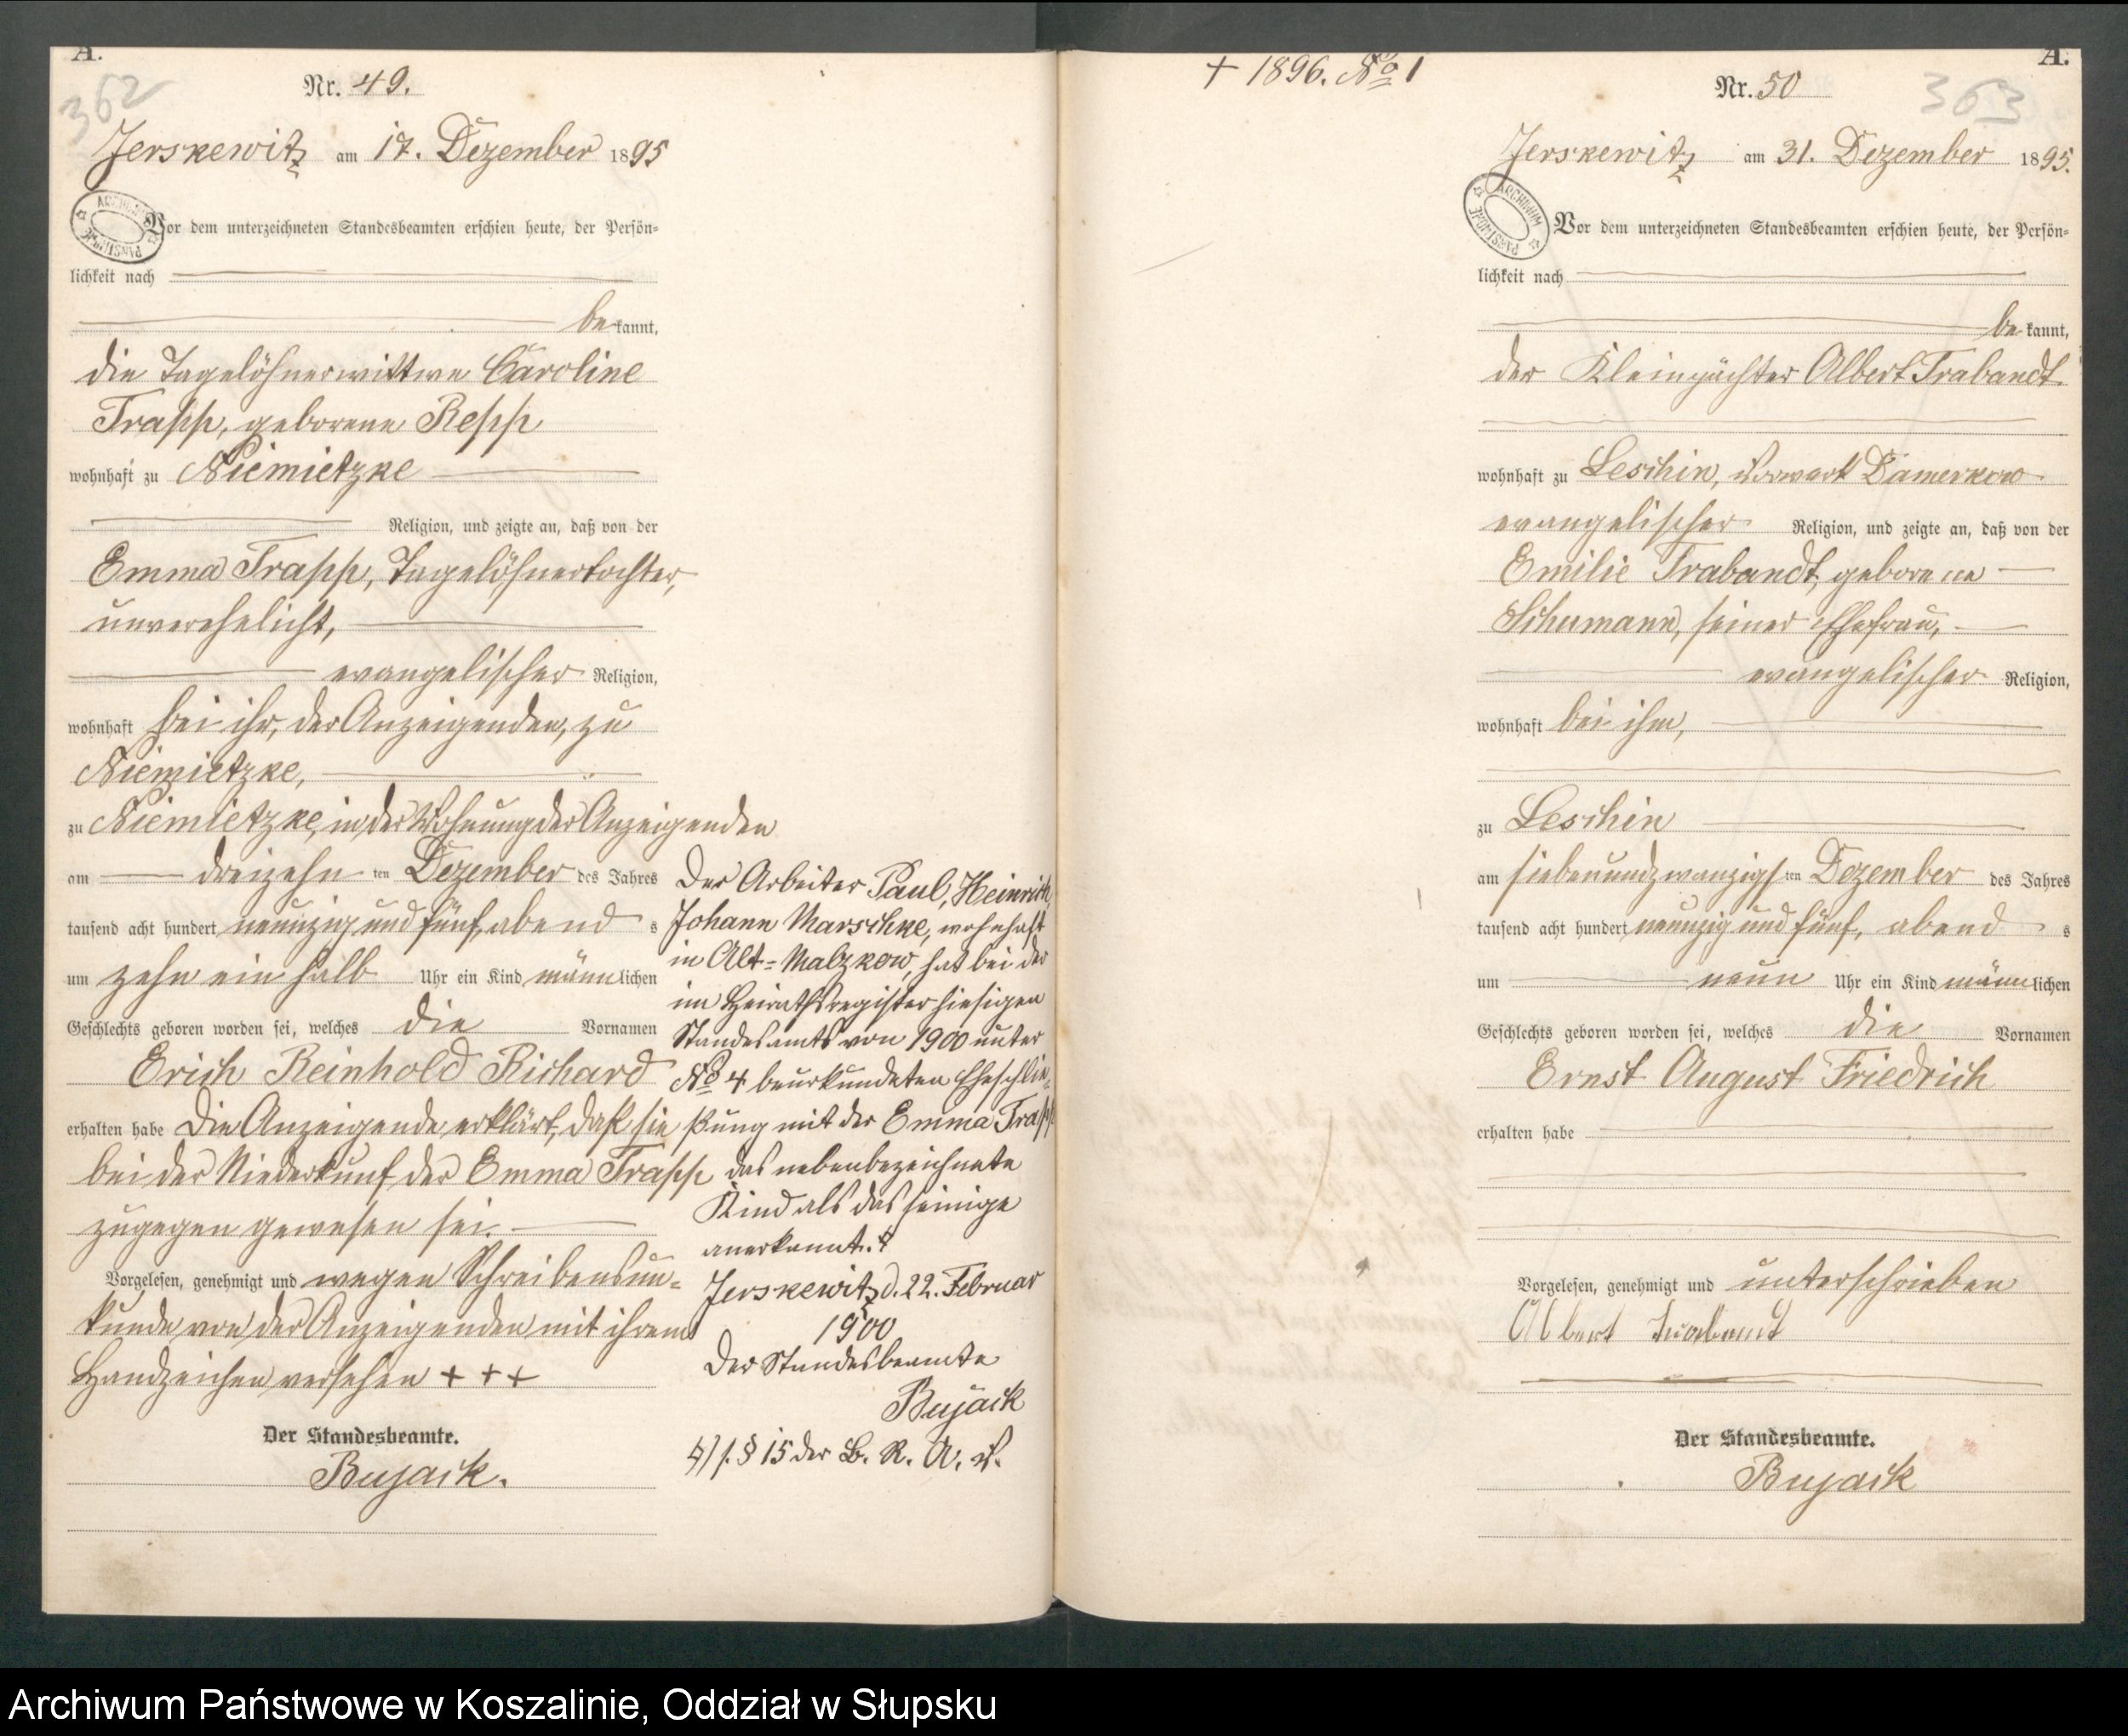 A.
362
Nr. 49.
Jerskewitz am 17. Dezember 1895
Vor dem unterzeichneten Standesbeamten erschien heute, der Persön-
lichkeit nach
bekannt,
die Tagelöhnerwittwe Caroline
Trapp, geborene Repp
wohnhaft zu Niemietzke
Religion, und zeigte an, daß von der
Emma Trapp, Tagelöhnertochter,
unverehelicht,
evangelischer Religion,
wohnhaft bei ihr, der Anzeigenden, zu
Niemietzke,
zu Niemietzke, in der Wohnung der Anzeigenden
am dreizehn ten Dezember des Jahres
tausend acht hundert neunzig und fünf, abend s
um zehn ein halb Uhr ein Kind männlichen
Geschlechts geboren worden sei, welches die Vornamen
Erich Reinhold Richard
erhalten habe Die Anzeigende erklärt, daß sie
bei der Niederkunf der Emma Trapp
zugegen gewesen sei.
Vorgelesen, genehmigt und wegen Schreibensun-
kunde von der Anzeigenden mit ihrem
Handzeichen versehen + + +
Der Standesbeamte.
Bujack.
Der Arbeiter Paul, Heinrich,
Johann Marschke, wohnhaft
in Alt-Malzkow, hat bei der
im Heirathsregister hiesigen
Standesamts von 1900 unter
No 4 beurkundeten Eheschlie-
ßung mit der Emma Trapp
das nebenbezeichnete
Kind als das seinige
anerkannt.
Jerskewitz d. 22. Februar
1900
Der Standesbeamte
Bujack
§ 15 der B. R. A. V.
+ 1896. No 1
A.
363
Nr. 50
Jerskewitz am 31. Dezember 1895.
Vor dem unterzeichneten Standesbeamten erschien heute, der Persön-
lichkeit nach
bekannt,
der Kleinpächter Albert Trabandt
wohnhaft zu Leschin, Vorwerk Damerkow
evangelischer Religion, und zeigte an, daß von der
Emilie Trabandt, geborene
Schumann, seiner Ehefrau,
evangelischer Religion,
wohnhaft bei ihm,
zu Leschin
am siebenundzwanzigsten Dezember des Jahres
tausend acht hundert neunzig und fünf, abend s
um neun Uhr ein Kind männlichen
Geschlechts geboren worden sei, welches die Vornamen
Ernst August Friedrich
erhalten habe
Vorgelesen, genehmigt und unterschrieben
Albert Trabandt
Der Standesbeamte.
Bujack
Archiwum Państwowe w Koszalinie, Oddział w Słupsku